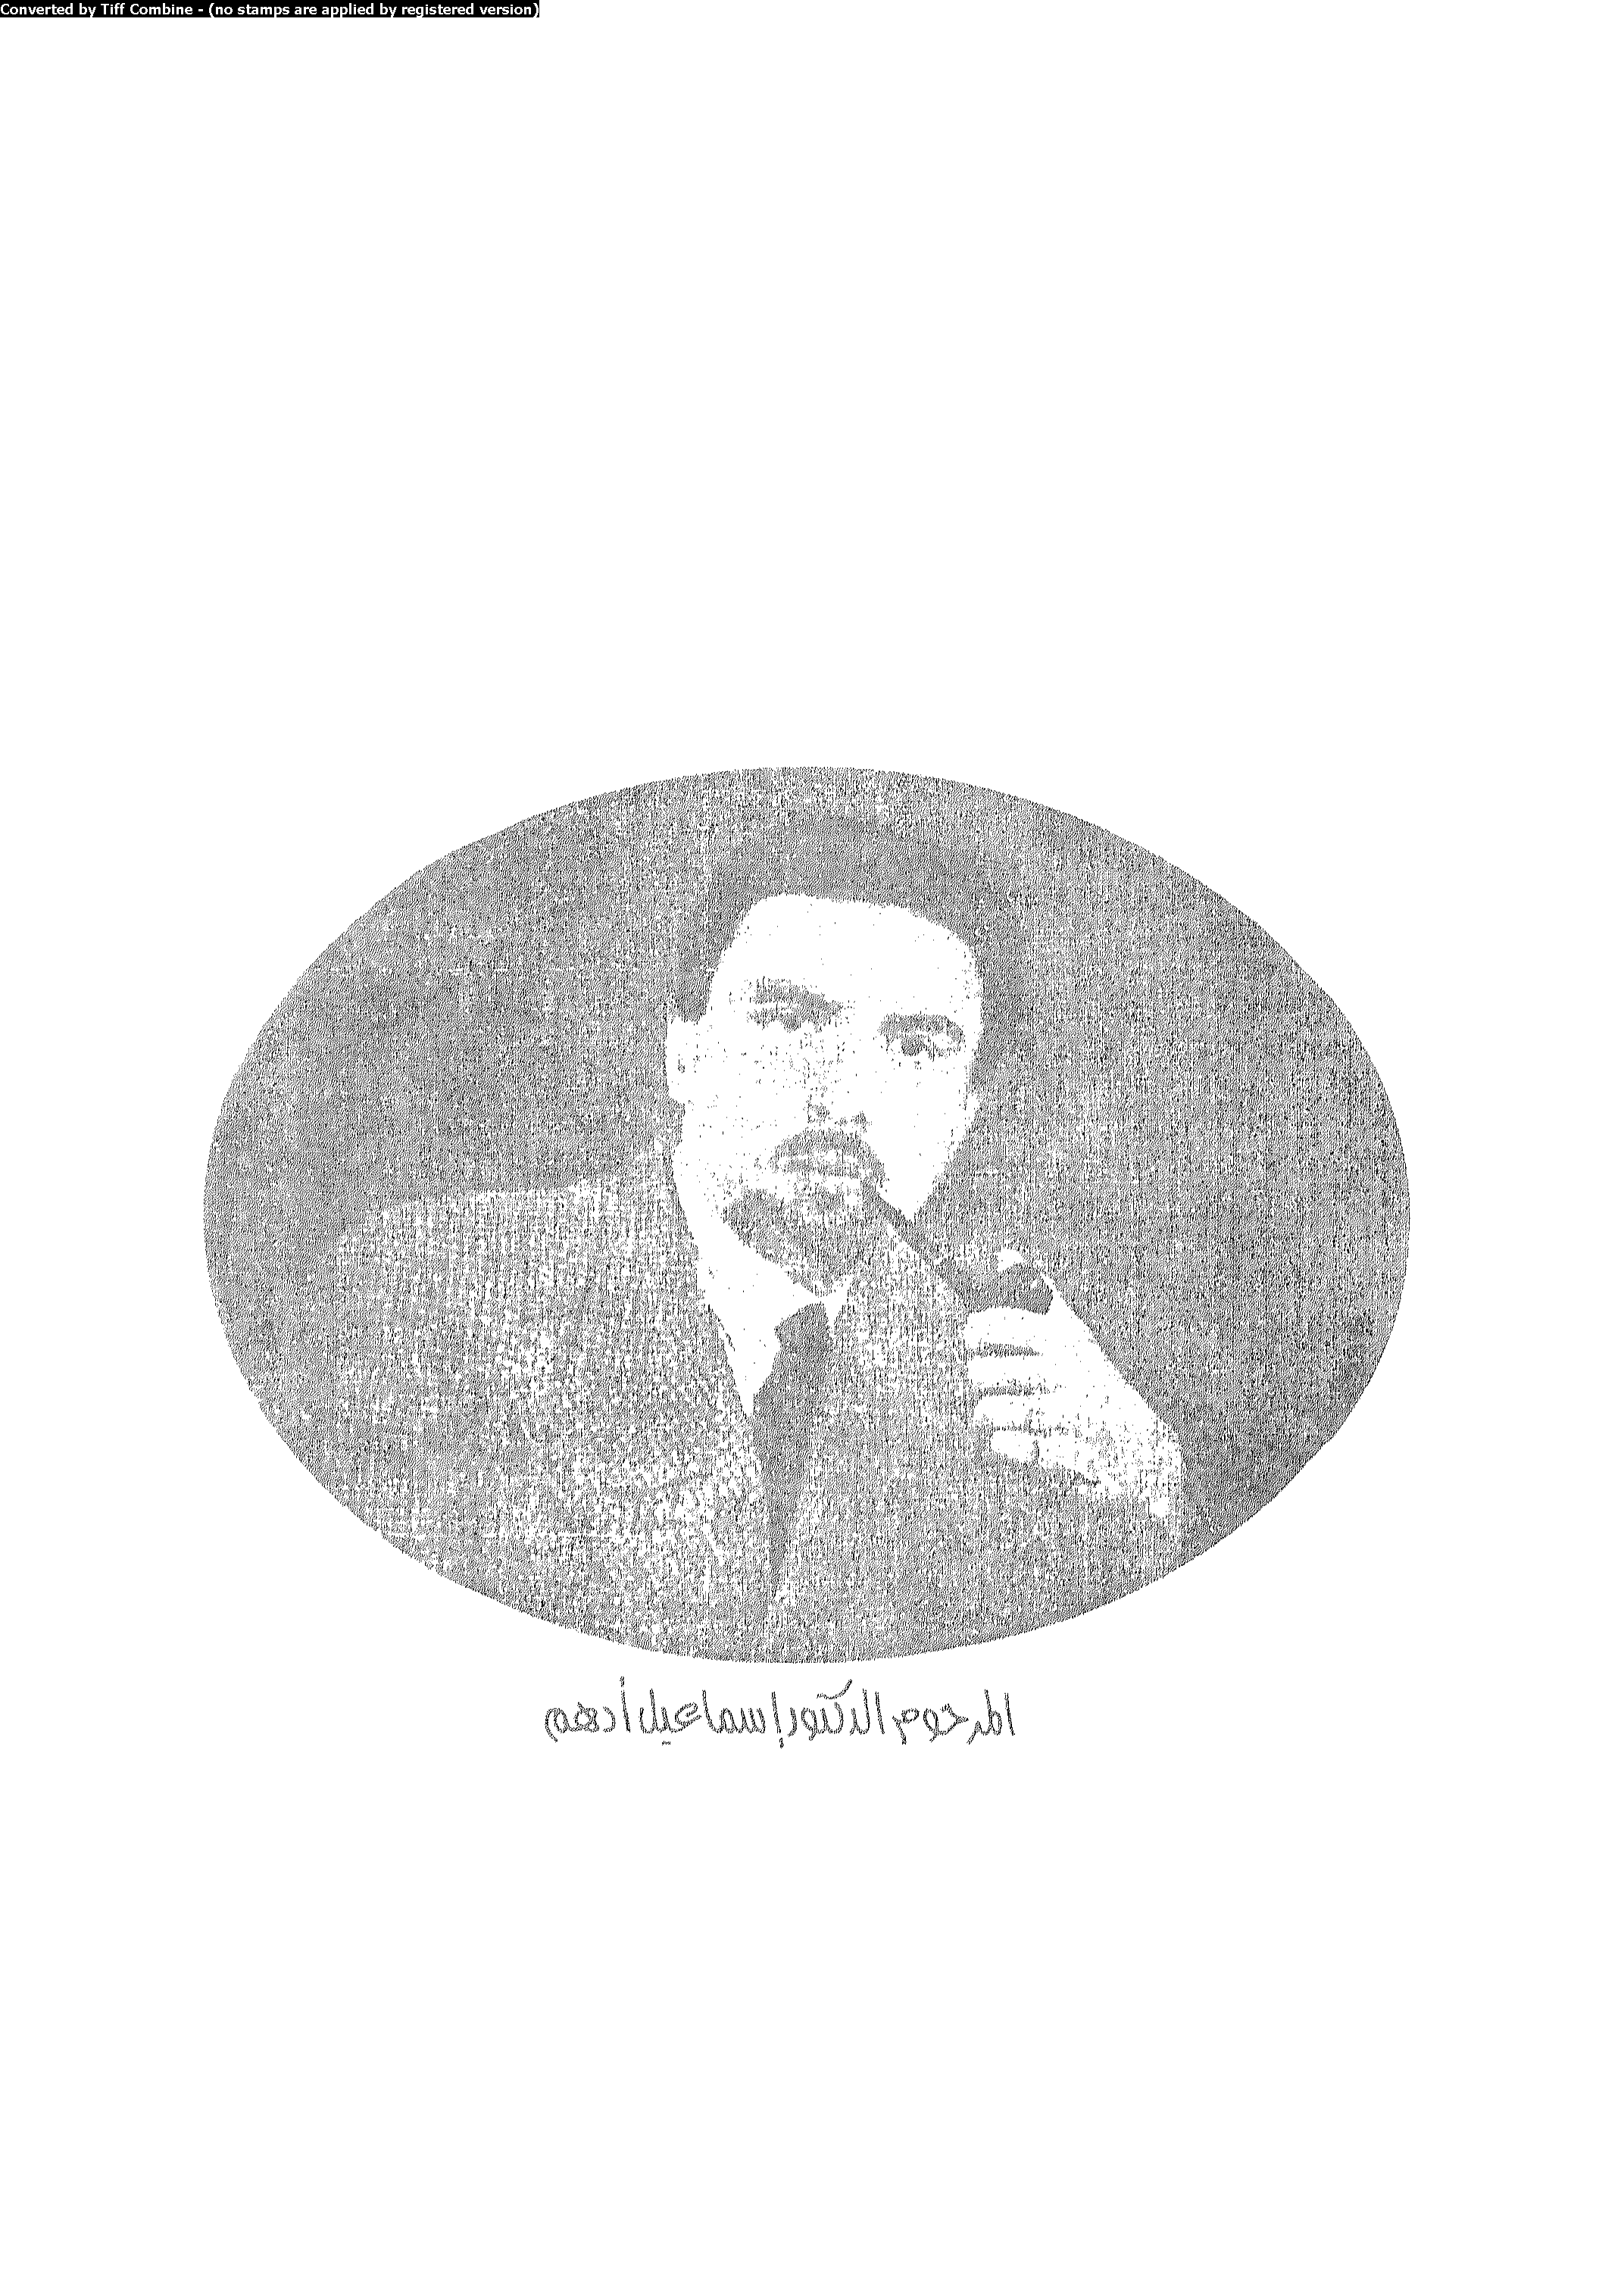 Converted by Tiff Combine - (no stamps are applied by registered version)
المرحوم الدكتور إسماعيل أدهم